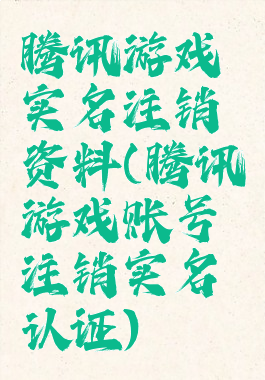 腾讯游戏
实名注销
资料(腾讯
游戏账号
注销实名
认证)